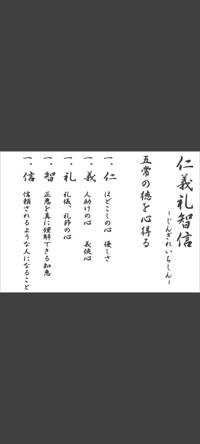 仁義礼智信
～じんぎれいちしん～
五常の徳を心得る
一、仁 ほどこしの心 優しさ
一、義 人助けの心 義侠心
一、礼 礼儀、礼節の心
一、智 正悪を真に理解できる知恵
一、信 信頼されるような人になること